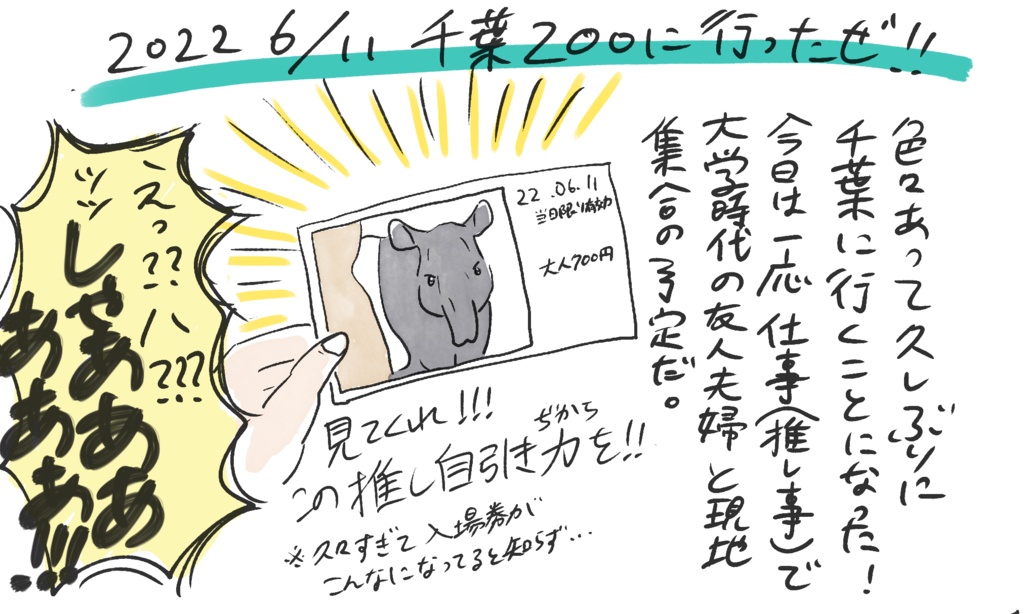 2022 6/11 千葉ZOOに行ったぜ!!
色々あって久しぶりに
千葉に行くことになった!
今日は一応仕事(推し事)で
大学時代の友人夫婦と現地
集合の予定だ。
22.06.11
当日限り有効
大人700円
えっ??ハ???
ッッしゃああああ
ああああ!!!
見てくれ!!!
ぢから
この推し自引き力を!!
※久々すぎて入場券が
こんなになってると知らず…